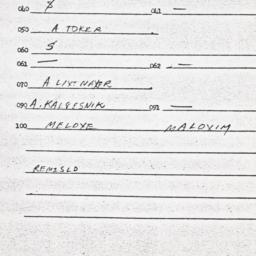 040 8 041 —
050 A TOKER
060 5
061 — 062 —
070 A LIT-NAYER
090 A. KALGESNIK 091 —
100 MELOYE MALOYIM
REMISLD